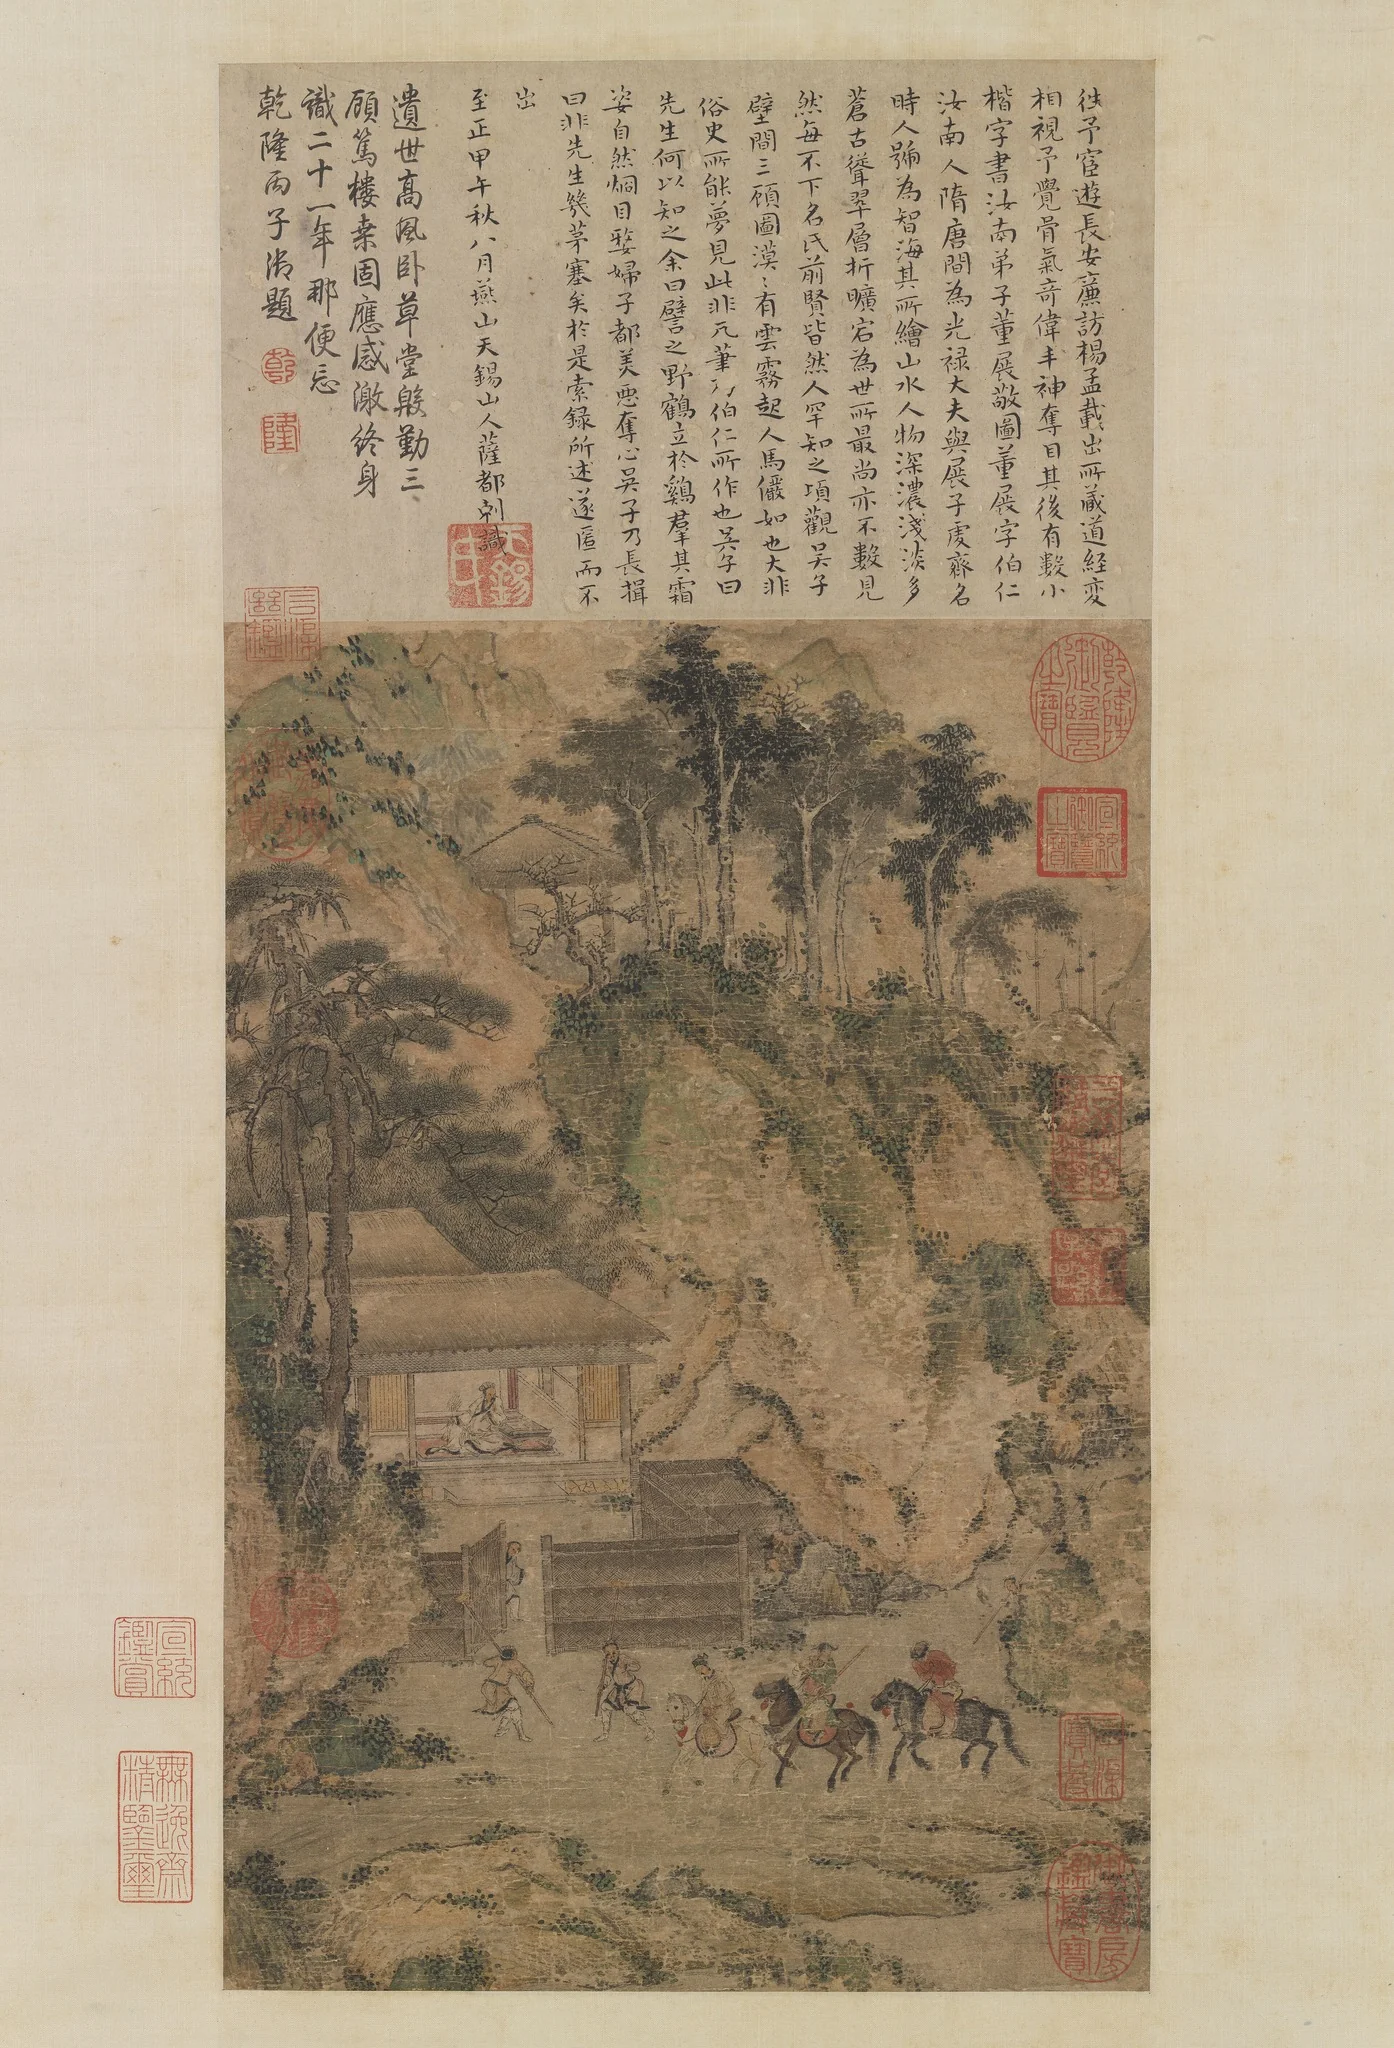 往予宦遊長安廉訪楊孟載出所藏道經變
相視予覺骨氣奇偉丰神奪目其後有數小
楷字書汝南弟子董展敬圖董展字伯仁
汝南人隋唐間為光禄大夫與展子虔齊名
時人號為智海其所繪山水人物深濃淺淡多
蒼古聳翠層折曠宕為世所最尚亦不數見
然每不下名氏前賢皆然人罕知之頃觀吴子
壁間三顧圖漠〻有雲霧起人馬儼如也大非
俗史所能夢見此非凡筆乃伯仁所作也吴子曰
先生何以知之余曰譬之野鶴立於鷄羣其霜
姿自然烱目嫠婦子都美惡奪心吴子乃長揖
曰非先生幾茅塞矣於是索録所述遂匿而不
出
至正甲午秋八月燕山天錫山人薩都剌識
遺世高風卧草堂殷勤三
顧篤樓桑固應感激終身
識二十一年那便忘
乾隆丙子御題
乾
隆
乾隆御覽之寶
宣統御覽之寶
宣統鑑賞
無逸齋精鑒璽
御書房鑑藏寶